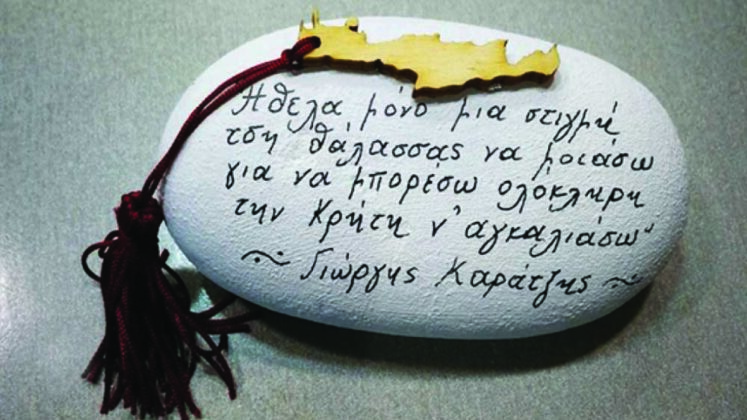 Ήθελα μόνο μια στιγμή
τση θάλασσας να μοιάσω
για να μπορέσω ολόκληρη
την Κρήτη ν' αγκαλιάσω"
~ Γιώργης Καράτζης ~